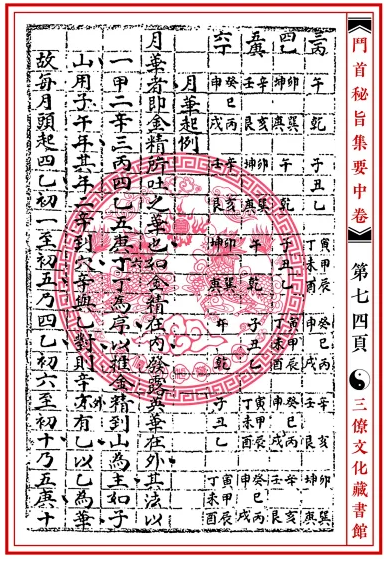 鬥首秘旨集要中卷 第七四頁 三僚文化藏書館
三丙 午乾 子丑乙 寅甲辰丁未酉 癸巳丙申戌 辛壬艮 卯巽坤庚
四乙 卯巽坤庚 午乾 子丑乙 寅甲辰丁未酉 癸巳丙申戌 辛亥壬艮
五庚 辛亥壬艮 卯巽坤庚 午乾 子丑乙 寅甲辰丁未酉 癸巳丙申戌
六丁 癸巳丙申戌 壬辛艮亥 卯巽坤庚 午乾 子丑乙 寅甲辰丁未酉
月華起例
月華者即金精所吐之華也如金精在內發露異華在外其法以
一甲二辛三丙四乙五庚丁為序以推金精到山為主如子
山用子午年其年二辛到穴辛與乙對則辛外有乙以乙為華
故每月頭起四乙初一至初五乃四乙初六至初十乃五庚十